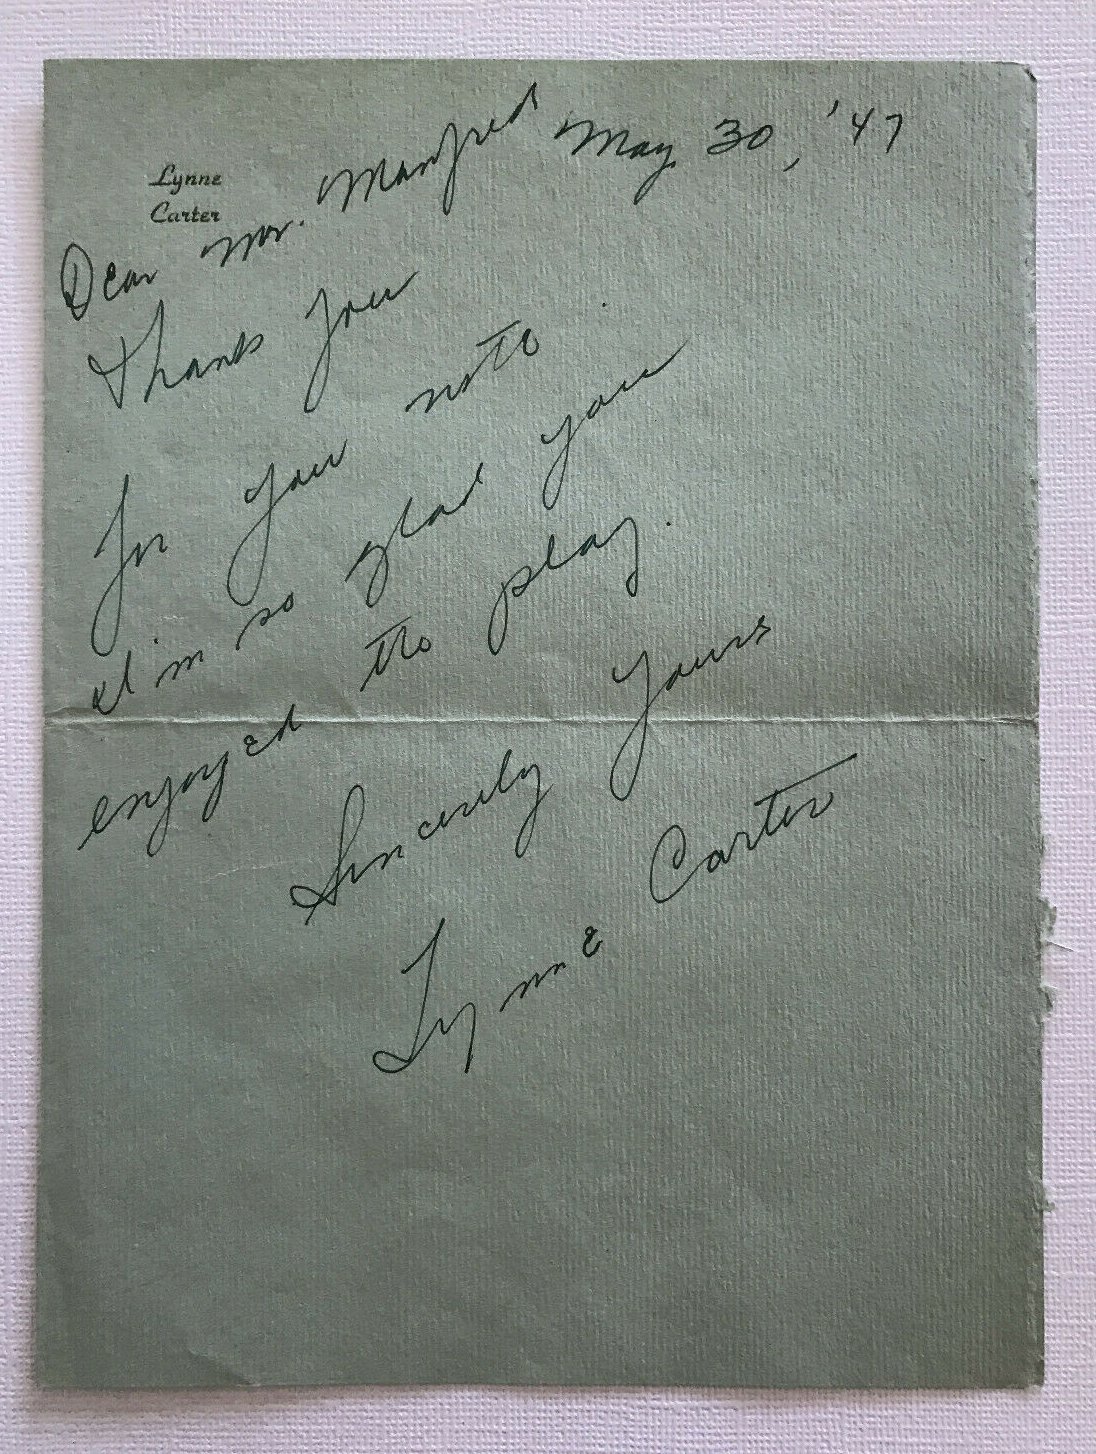 Lynne
Carter
May 30, '47
Dear Mr. Manfred
Thank you
for your note.
I'm so glad you
enjoyed the play.
Sincerely Yours
Lynne Carter